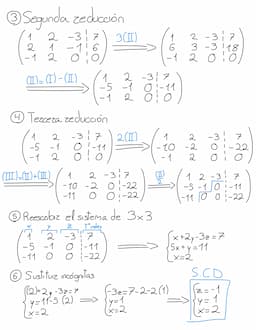 ③ Segunda reducción
( 1 2 -3 | 7 ; 2 1 -1 | 6 ; -1 2 0 | 0 ) 3(II) ⟹ ( 1 2 -3 | 7 ; 6 3 -3 | 18 ; -1 2 0 | 0 )
(II)=(I)-(II) ⟹ ( 1 2 -3 | 7 ; -5 -1 0 | -11 ; -1 2 0 | 0 )
④ Tercera reducción
( 1 2 -3 | 7 ; -5 -1 0 | -11 ; -1 2 0 | 0 ) 2(II) ⟹ ( 1 2 -3 | 7 ; -10 -2 0 | -22 ; -1 2 0 | 0 )
(III)=(II)+(III) ⟹ ( 1 2 -3 | 7 ; -10 -2 0 | -22 ; -11 0 0 | -22 ) ⟹ ( 1 2 -3 | 7 ; -5 -1 0 | -11 ; -11 0 0 | -22 )
⑤ Reescribir el sistema de 3×3
x y z
( 1 2 -3 | 7 ; -5 -1 0 | -11 ; -11 0 0 | -22 ) ⟹ { x+2y-3z=7 ; 5x+y=11 ; x=2
⑥ Sustituir incógnitas
S.C.D
{ (2)+2y-3z=7 ; y=11-5(2) ; x=2 ⟹ { -3z=7-2-2(1) ; y=1 ; x=2 ⟹ { z=-1 ; y=1 ; x=2